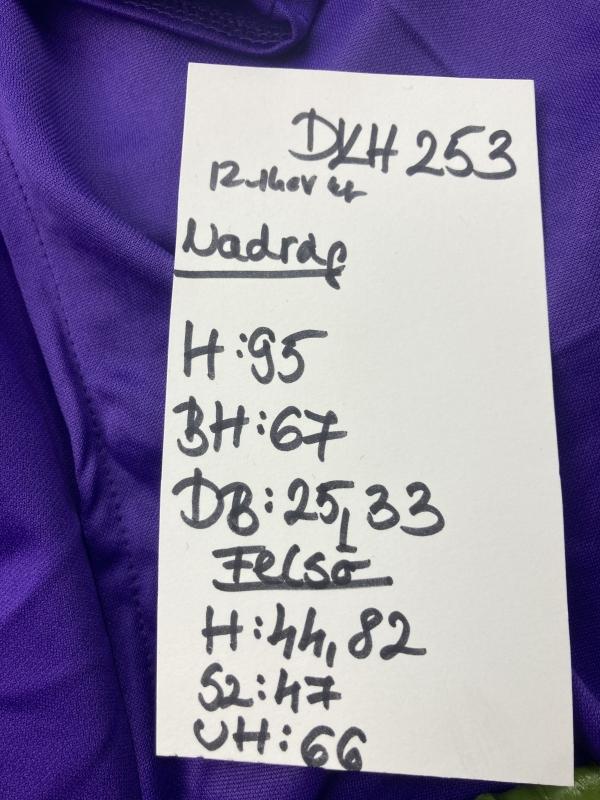 DKH 253
Nadrág
H:95
BH:67
DB:25,33
Felső
H:44,82
SZ:47
UH:66